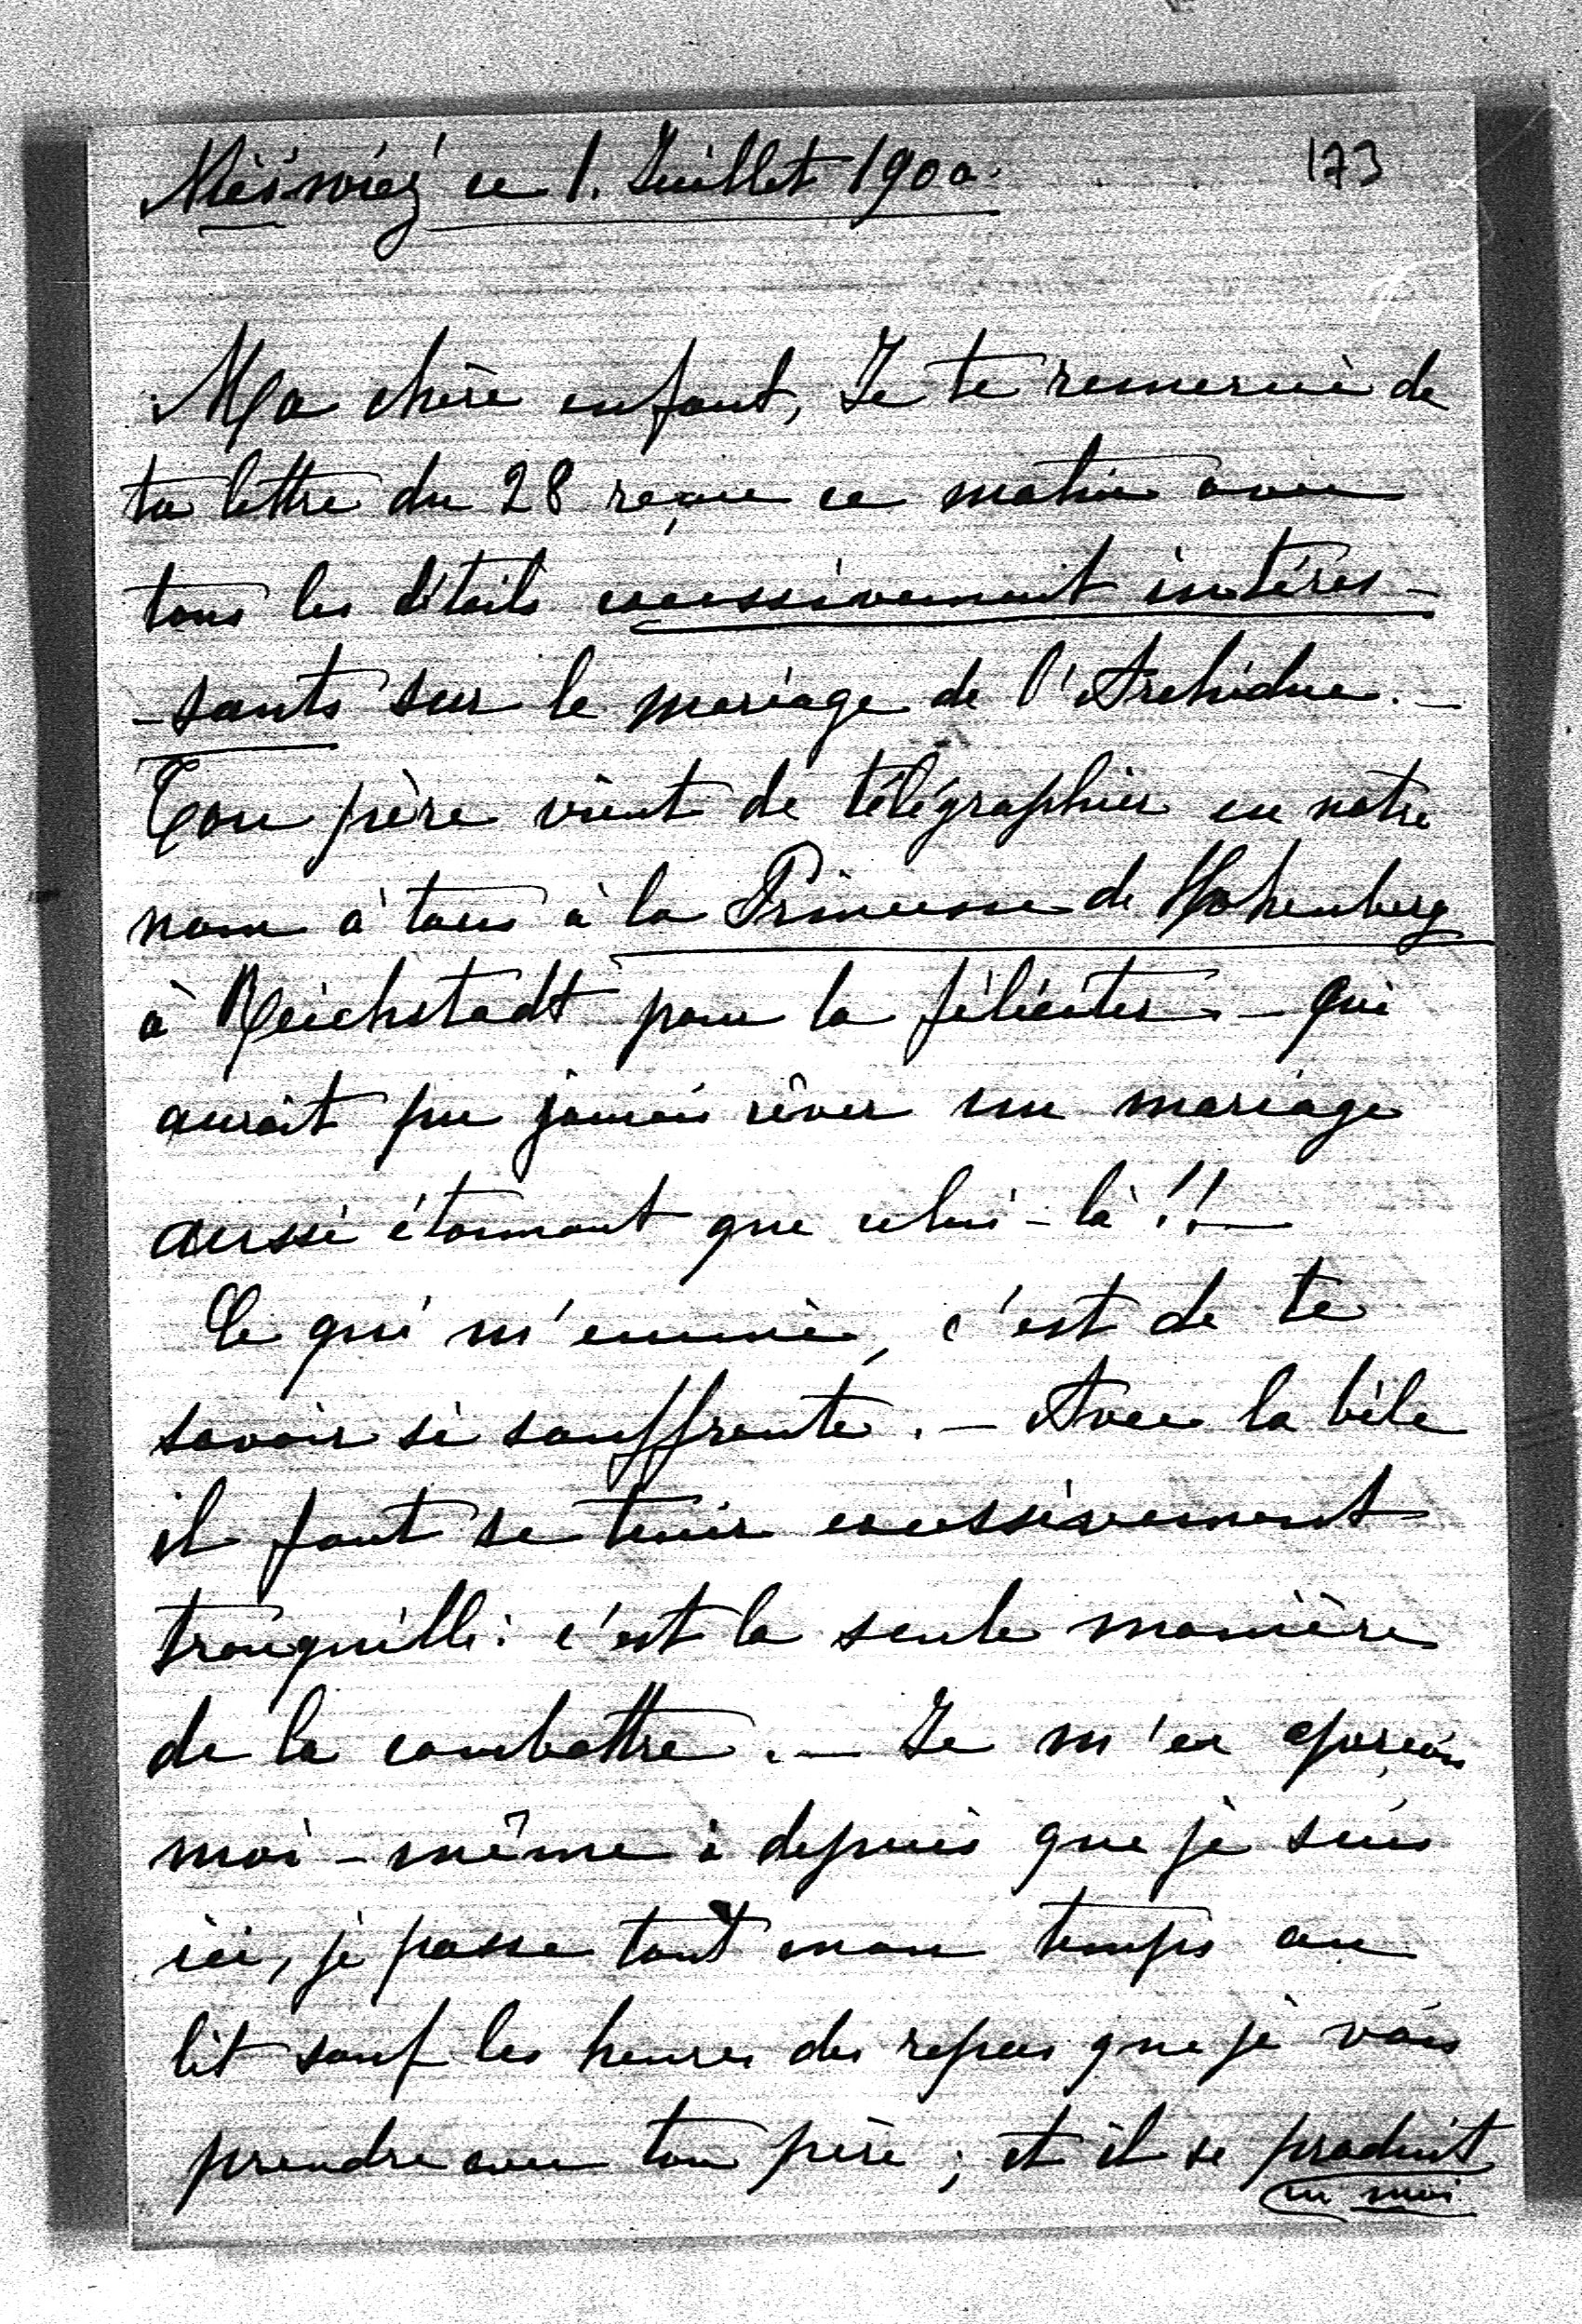 Nieświeź ce 1. Juillet 1900.
173
Ma chère enfant, Je te remercie de
ta lettre du 28 reçue ce matin avec
tous les détails excessivement intéres-
-sants sur le mariage de l'Archiduc. -
Ton père vient de télégraphier en notre
nom à tous à la Princesse de Hohenberg
à Reichstadt pour la féliciter. - Qui
aurait pu jamais rêver un mariage
aussi étonnant que celui-là !! -
Ce qui m'ennuie, c'est de te
savoir si souffrante. - Avec la bile
il faut se tenir excessivement
tranquille: c'est la seule manière
de la combattre. - Je m'en aperçois
moi-même: depuis que je suis
ici, je passe tout mon temps au
lit sauf les heures des repas que je vais
prendre avec ton père; et il se produit
en moi